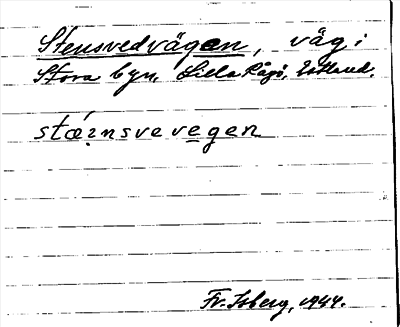 Stensvedvägen, väg i
Stora byn, Lilla Rågö, Estland.
stǽ:nsvevegen
Fr. Isberg, 1944.